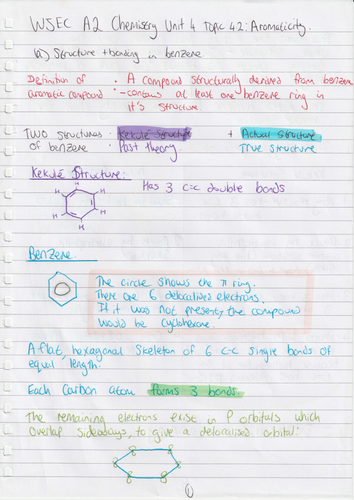 WJEC A2 Chemistry Unit 4 Topic 4.2: Aromaticity.
(a) Structure + bonding in benzene
Definition of · A compound structurally derived from benzene
aromatic compound · - contains at least one benzene ring in
it's structure
TWO structures · Kekulé Structure + Actual structure
of benzene Past theory True structure
Kekulé Structure:
Has 3 c=c double bonds
H
H H
H H
H
Benzene
The circle shows the π ring.
There are 6 delocalised electrons.
If it was not present, the compound
would be cyclohexane.
A flat, hexagonal skeleton of 6 c-c single bonds of
equal length.
Each carbon atom forms 3 bonds.
The remaining electrons exist in P orbitals which
overlap sideways, to give a delocalised orbital: